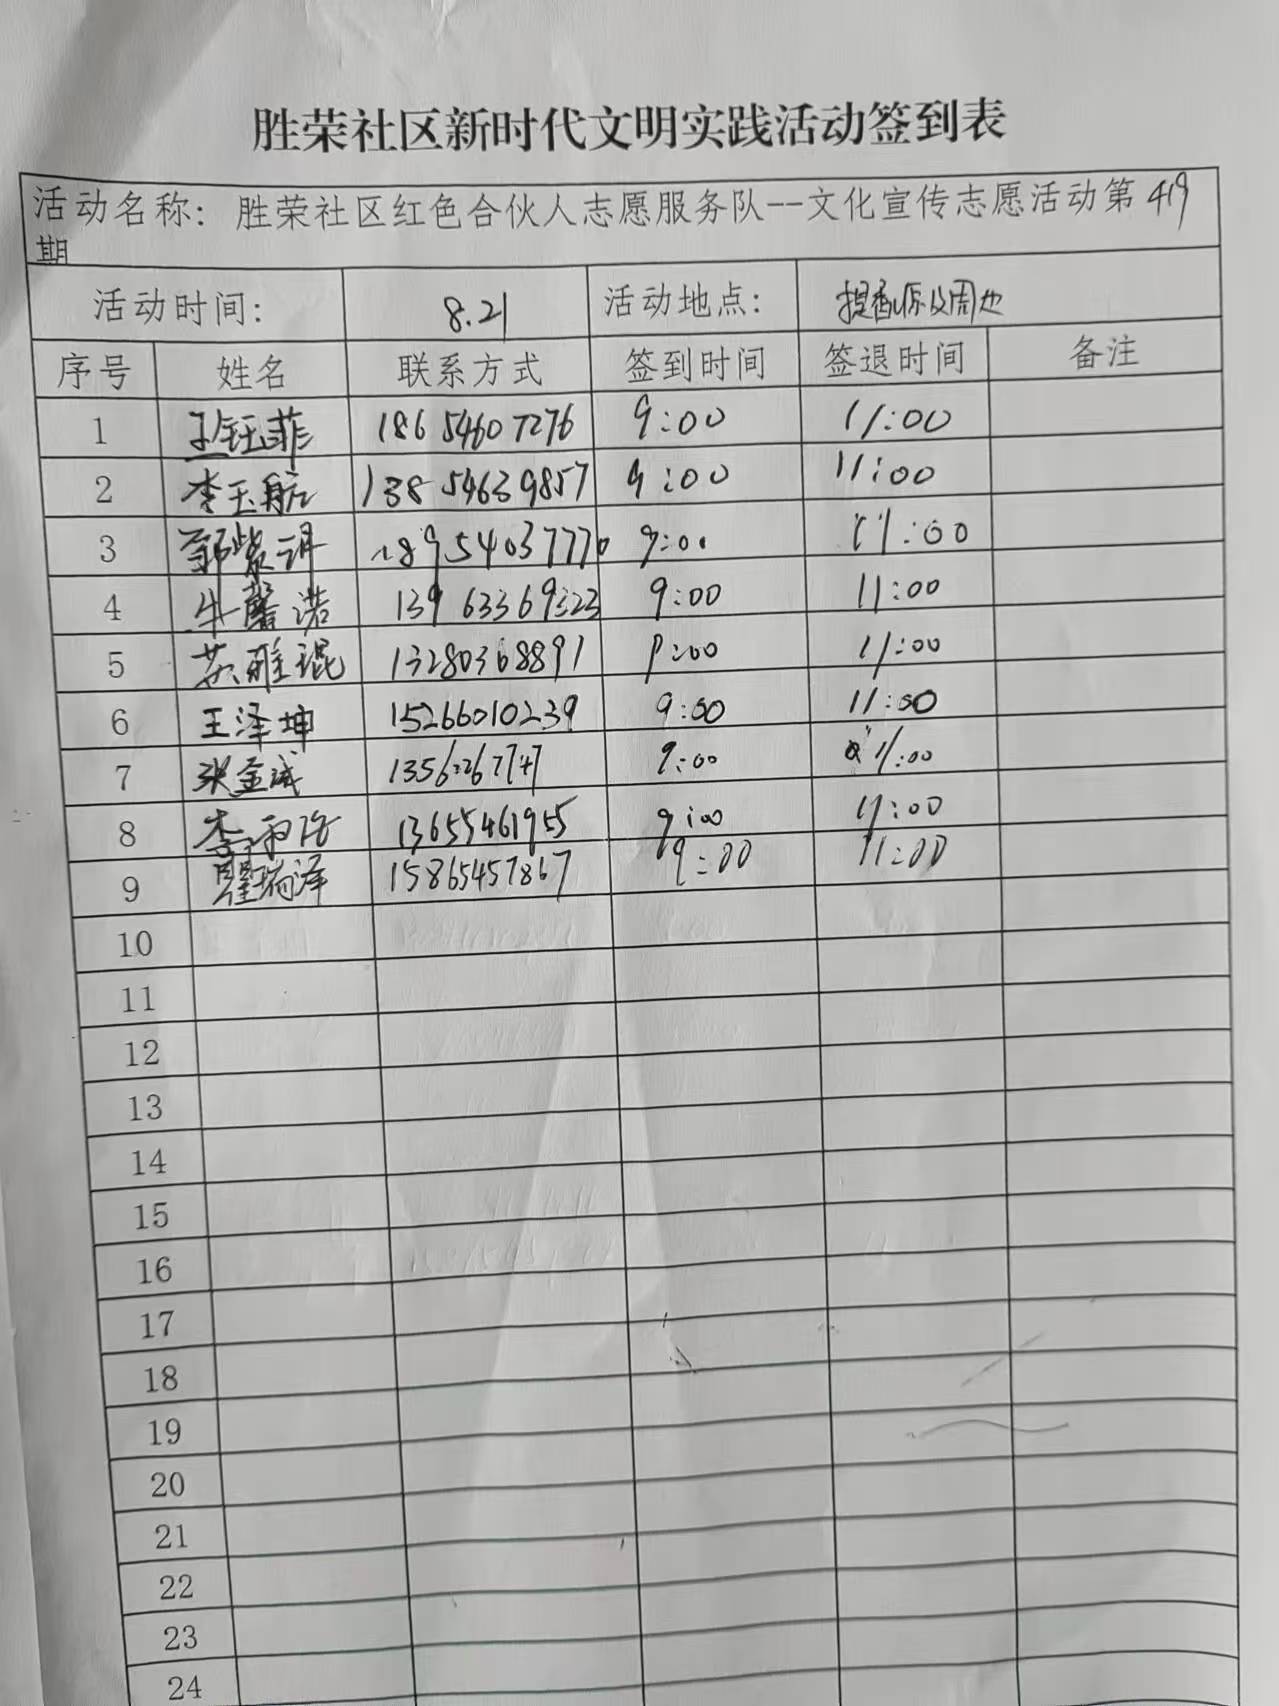 胜荣社区新时代文明实践活动签到表
活动名称：胜荣社区红色合伙人志愿服务队--文化宣传志愿活动第419
期
活动时间： 8.21 活动地点： 提香郡及周边
序号 姓名 联系方式 签到时间 签退时间 备注
1 钰菲 18654607276 9:00 11:00
2 李玉航 13854639857 9:00 11:00
3 郭紫 18954037770 9:00 11:00
4 牛馨诺 13963369323 9:00 11:00
5 苏雅琨 13280368891 9:00 11:00
6 王泽坤 15266010239 9:00 11:00
7 张金诚 9:00 11:00
8 李 13655461955 9:00 11:00
9 瞿瑞泽 15865457867 9:00 11:00
10
11
12
13
14
15
16
17
18
19
20
21
22
23
24